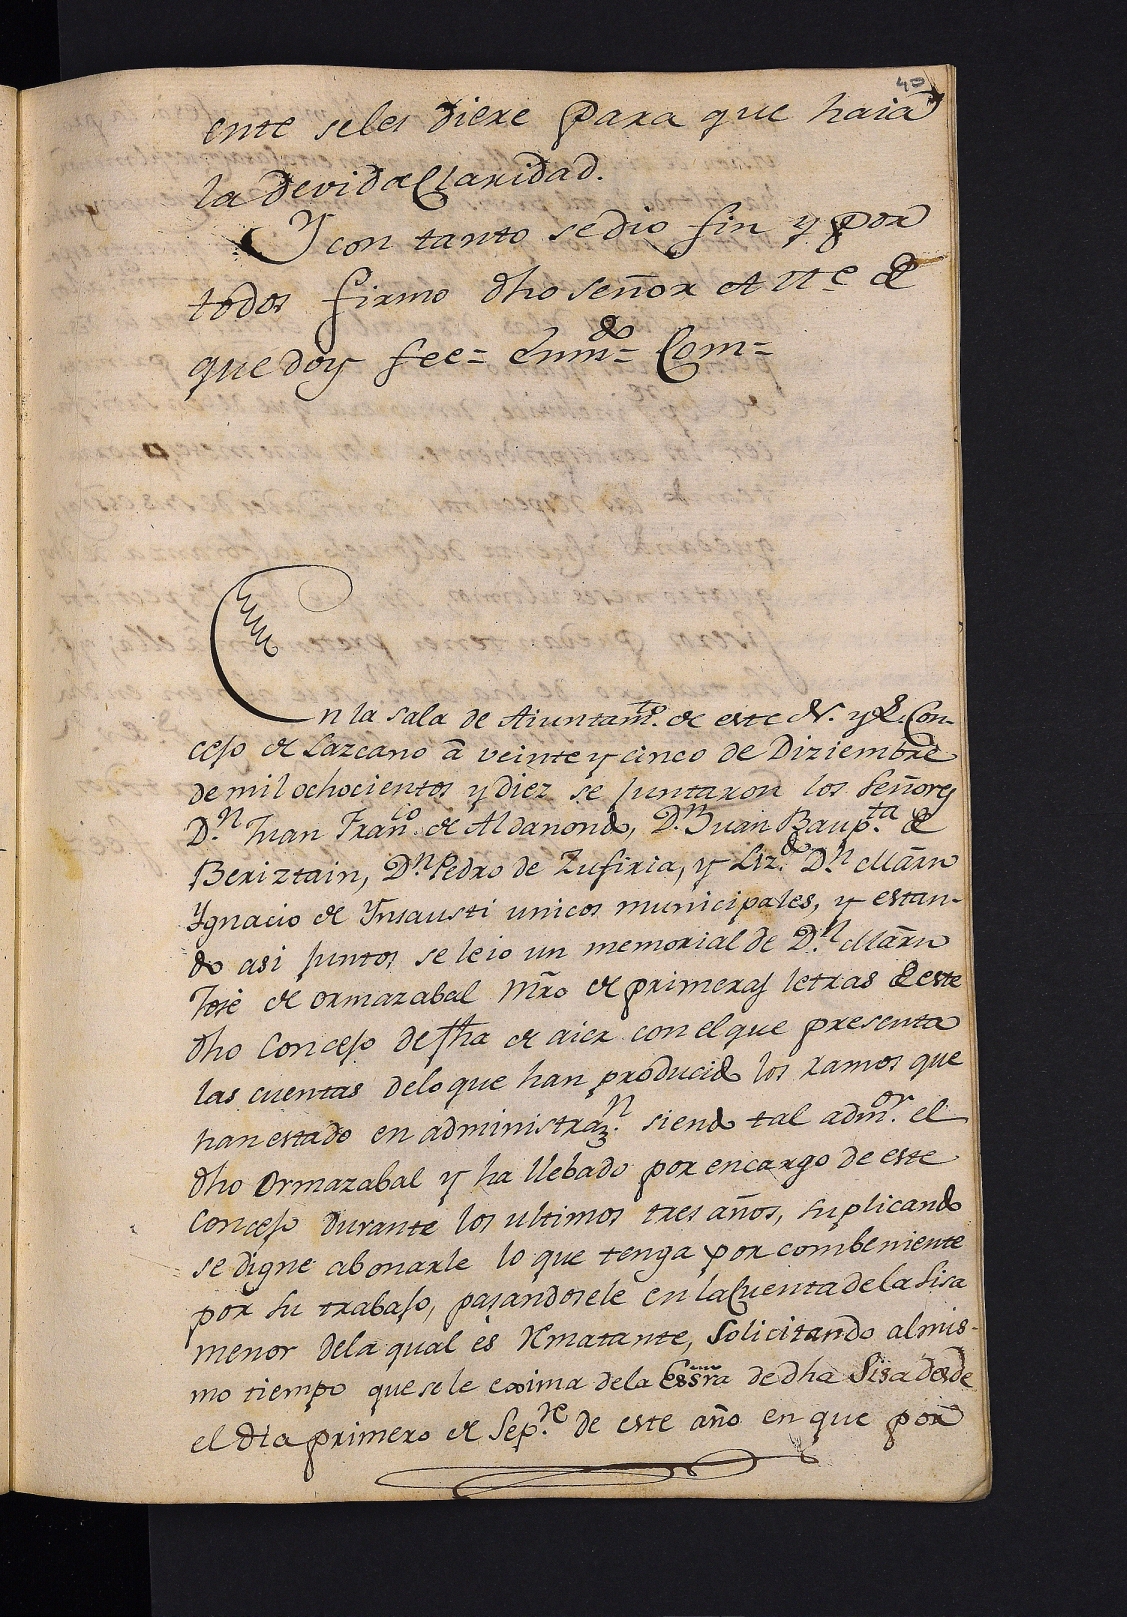 40
ente seles diere para que haia
la devida Claridad.
Y con tanto se dio fin y por
todos firmo dho señor Alte de
que doy fee= Enmdo= Com=
En la sala de Aiuntamto. de este N. y L. Con-
cejo de Lazcano a veinte y cinco de Diziembre
de mil ochocientos y diez se juntaron los Señores
Dn. Juan Franco. de Aldanondo, Dn. Juan Baupta. de
Beriztain, Dn. Pedro de Zufiria, y Lizdo. Dn. Marn
Ygnacio de Ynsausti unicos municipales, y estan-
do asi juntos se leio un memorial de Dn. Marn
Jose de Ormazabal Mro de primeras letras de este
dho Concejo de fha de aier con el que presenta
las cuentas delo que han producido los ramos que
han estado en administrazn. siendo tal admor. el
dho Ormazabal y ha llebado por encargo de este
Concejo durante los ultimos tres años, suplicando
se digne abonarle lo que tenga por combeniente
por su trabajo, pasandosele en la Cuenta de la Sisa
menor dela qual es Rematante, Solicitando al mis-
mo tiempo que se le exima dela Essra de dha Sisa desde
el dia primero de Sepre. de este año en que por